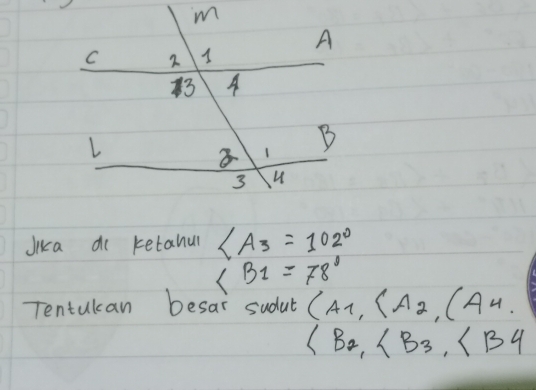 m
C 2 1 A
3 4
L 2 1 B
3 4
Jika di ketahui <A3 = 102°
<B1 = 78°
Tentukan besar sudut <A1, <A2, <A4.
<B2, <B3, <B4